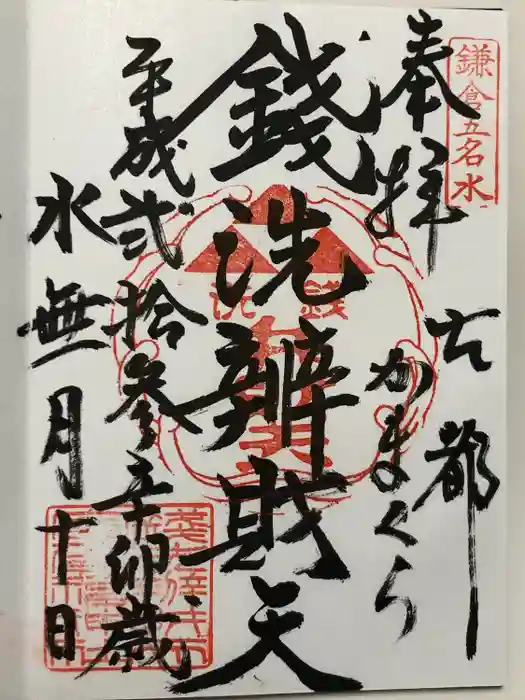 鎌倉五名水
奉拝
古都
かまくら
銭洗辨財天
平成弐拾参辛卯歳
水無月十日
銭洗